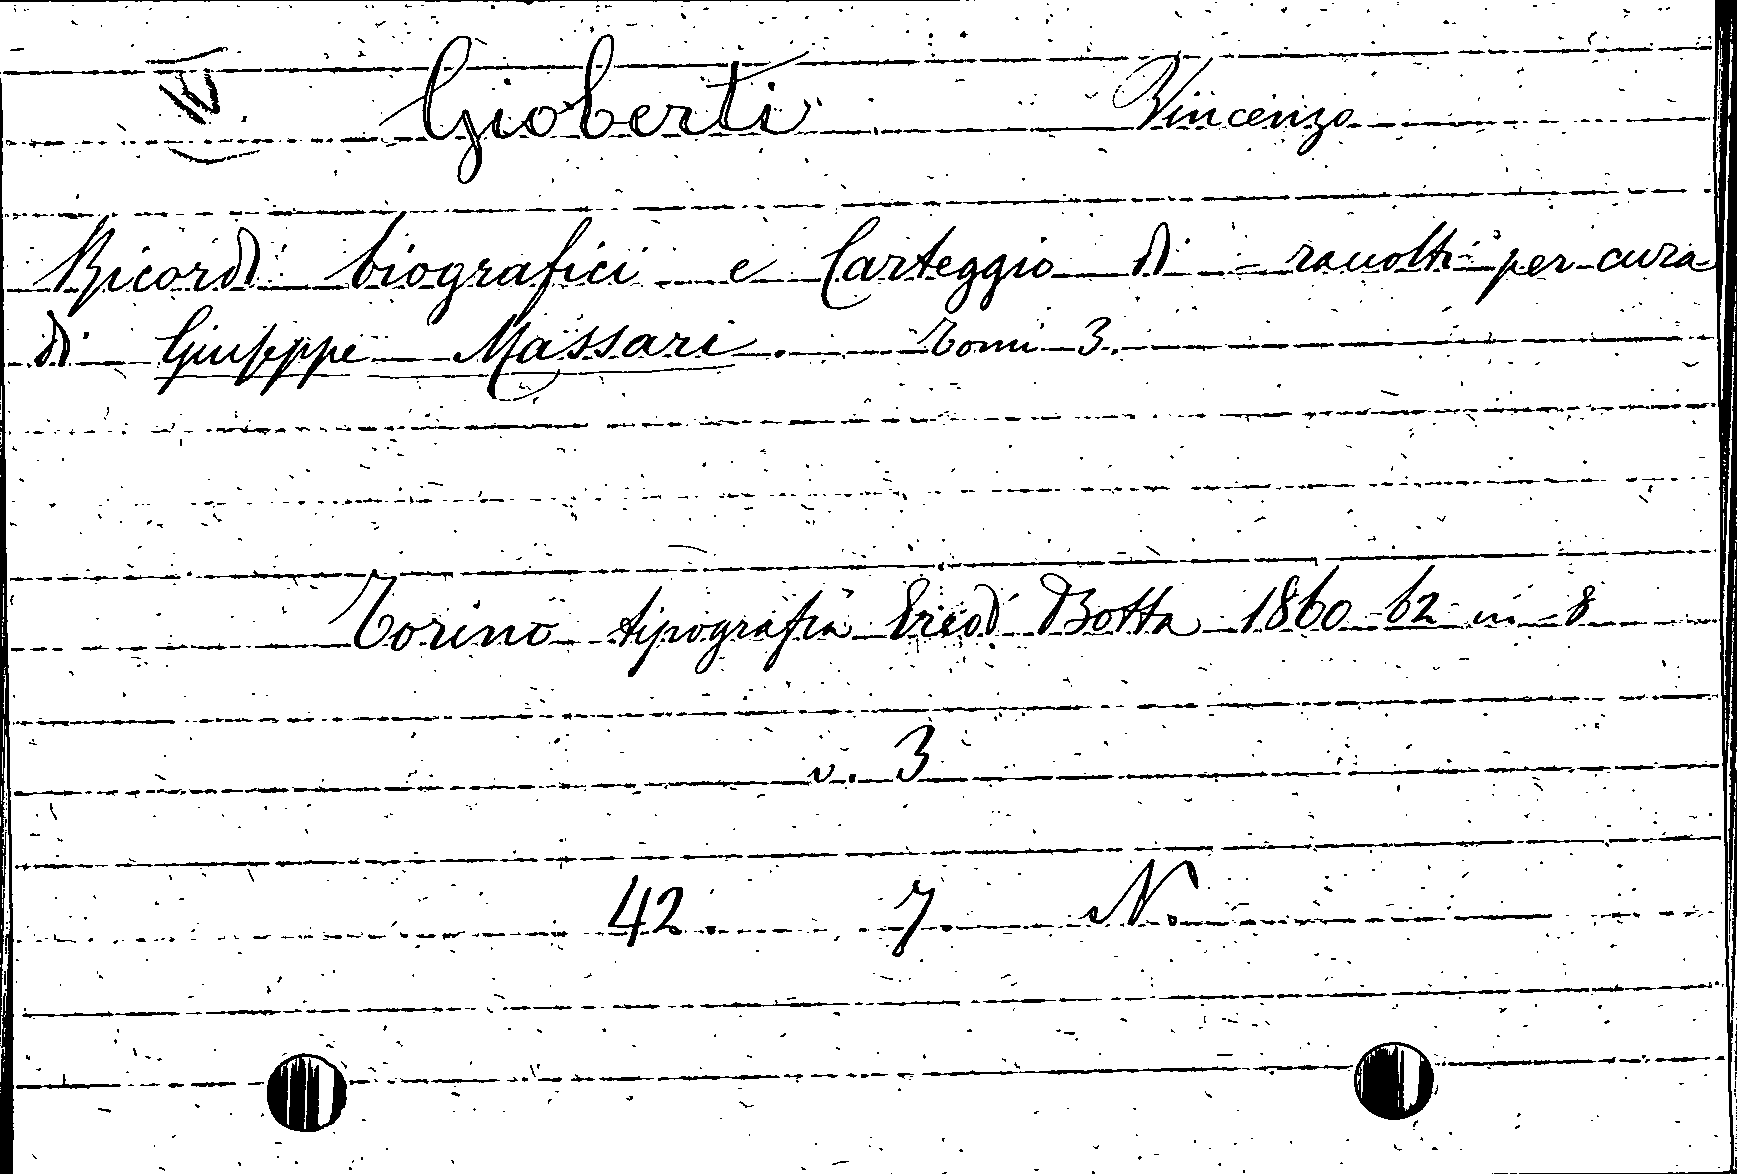 Gioberti Vincenzo
Ricordi biografici e Carteggio di - raccolti per cura
di Giuseppe Massari. Tomi 3.
Torino tipografia Eredi Botta 1860-62 in 8
v. 3
42. 7. N.